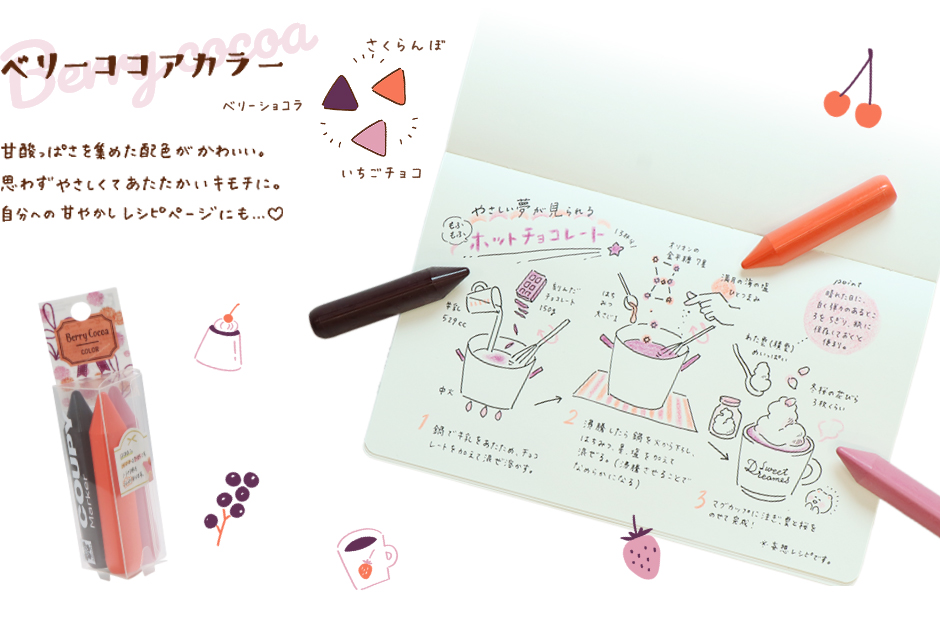 Berry cocoa
ベリーココアカラー
さくらんぼ
ベリーショコラ
いちごチョコ
甘酸っぱさを集めた配色がかわいい。
思わずやさしくてあたたかいキモチに。
自分への甘やかしレシピページにも…♡
Berry Cocoa
COLOR
COUPY
Marker
やさしい夢が見られる
もふもふ
ホットチョコレート
牛乳
529cc
中火
刻んだ
チョコレート
150g
はち
みつ
大さじ2
オリオンの
金平糖 7星
満月の海の塩
ひとつまみ
point
晴れた日に、
わた雲(積雲)
めいっぱい
冬桜の花びら
3枚くらい
Sweet
Dreams
1
鍋で牛乳をあたため、チョコ
レートを加えて混ぜ溶かす。
2
沸騰したら鍋を火から下ろし、
はちみつ、星、塩を加えて
混ぜる。(沸騰させることで
なめらかになる)
3
マグカップに注ぎ、雲と桜を
のせて完成!
※妄想レシピです。